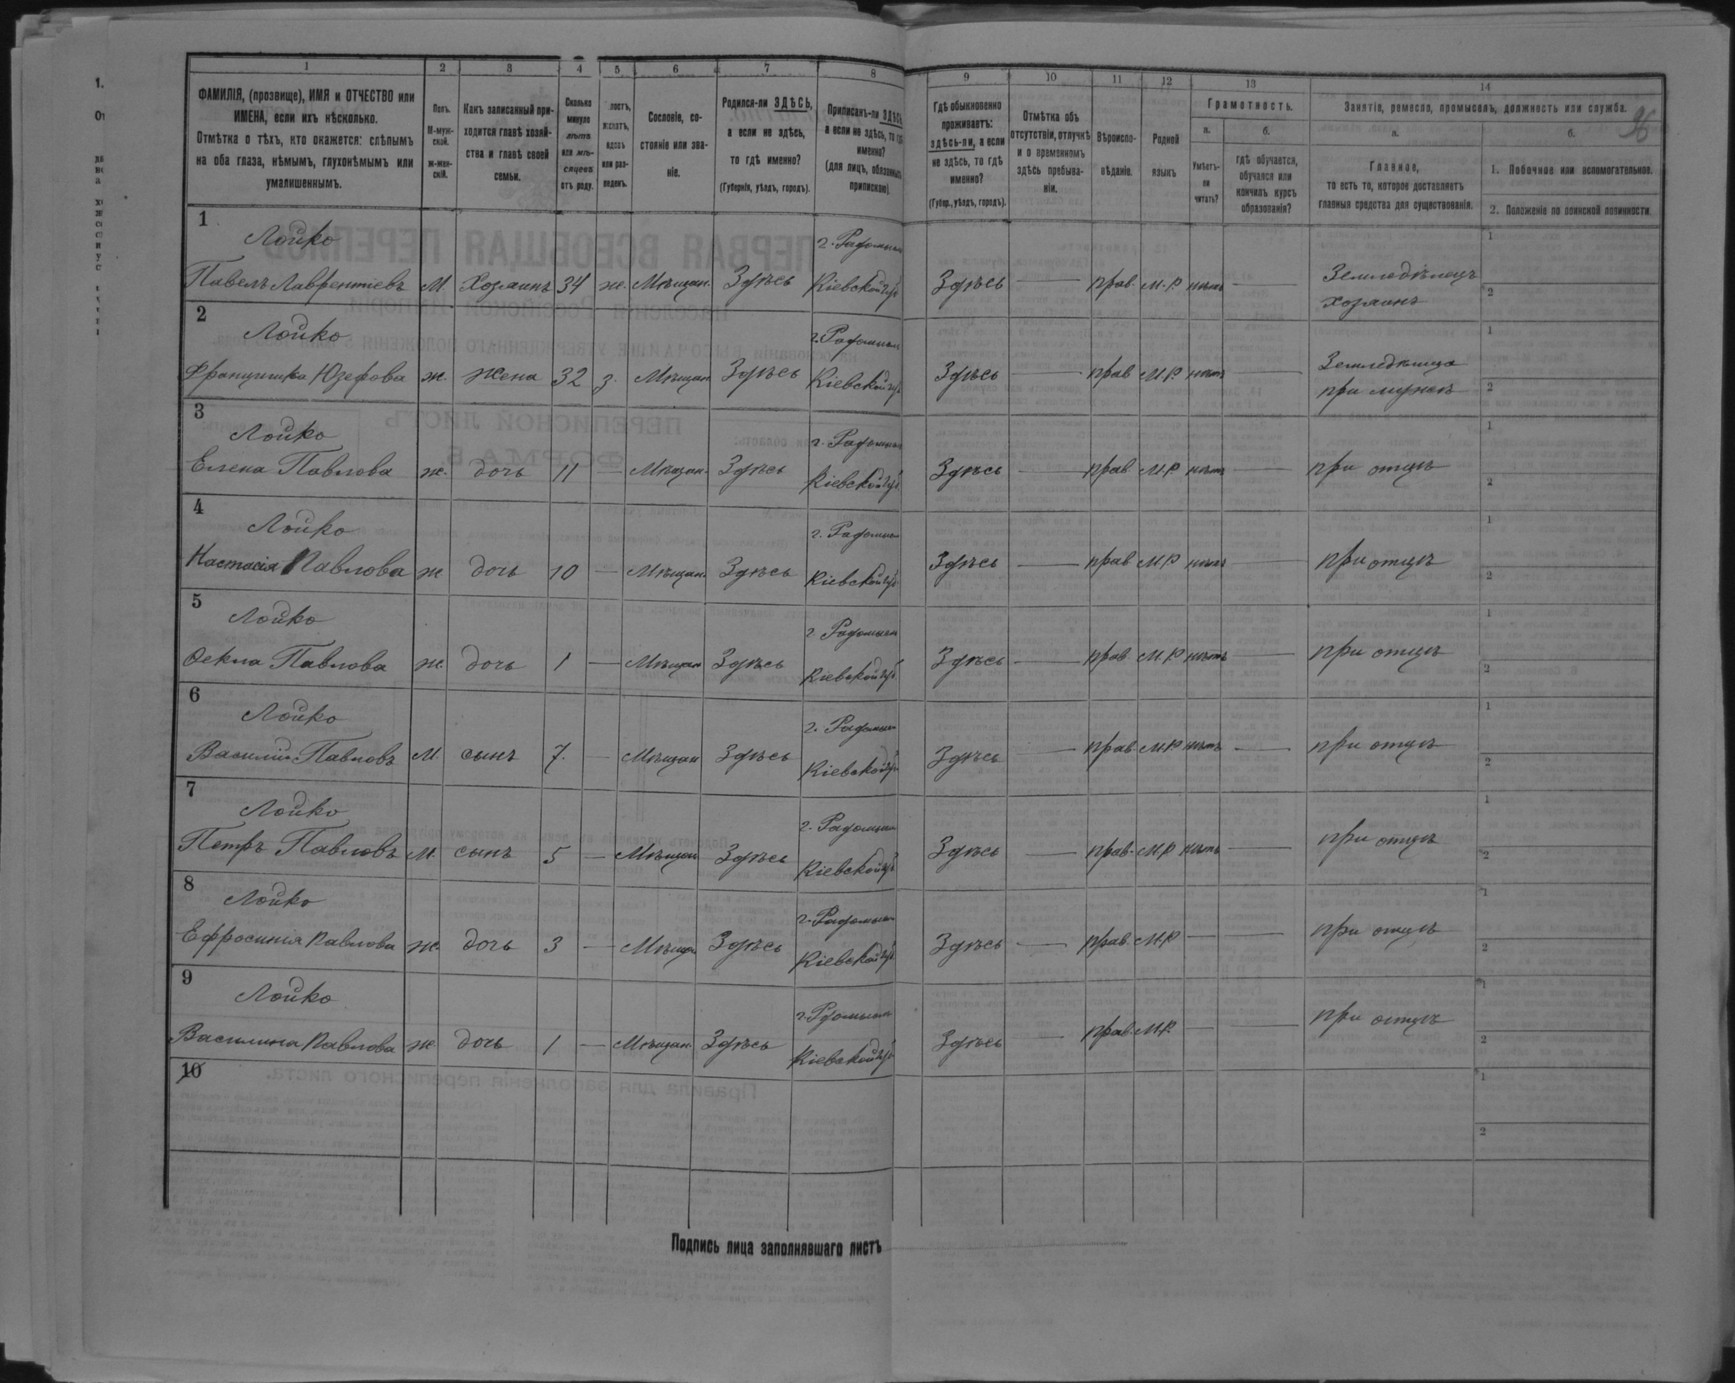 1 2 3 4 5 6 7 8 9 10 11 12 13 14
ФАМИЛІЯ, (прозвище), ИМЯ и ОТЧЕСТВО или ИМЕНА, если ихъ нѣсколько.
Отмѣтка о тѣхъ, кто окажется: слѣпымъ на оба глаза, нѣмымъ, глухонѣмымъ или умалишеннымъ.
Полъ. М-мужской. ж-женскій.
Какъ записанный приходится главѣ хозяйства и главѣ своей семьи.
Сколько минуло лѣтъ или мѣсяцевъ отъ роду.
Холостъ, женатъ, вдовъ или разведенъ.
Сословіе, состояніе или званіе.
Родился-ли ЗДѢСЬ, а если не здѣсь, то гдѣ именно?
(Губернія, уѣздъ, городъ).
Приписанъ-ли ЗДѢСЬ, а если не здѣсь, то гдѣ именно?
(для лицъ, обязанныхъ припискою).
Гдѣ обыкновенно проживаетъ: здѣсь-ли, а если не здѣсь, то гдѣ именно?
(Губер., уѣздъ, городъ).
Отмѣтка объ отсутствіи, отлучкѣ и о временномъ здѣсь пребываніи.
Вѣроисповѣданіе.
Родной языкъ
Грамотность.
а. Умѣетъ-ли читать?
б. гдѣ обучается, обучался или кончилъ курсъ образованія?
Занятіе, ремесло, промыселъ, должность или служба.
96
а. Главное, то есть то, которое доставляетъ главныя средства для существованія.
б. 1. Побочное или вспомогательное.
2. Положеніе по воинской повинности
1 Лойко г. Радомысль 1
Павелъ Лаврентіевъ М Хозяинъ 34 ж. Мѣщан. Здѣсь Кіевской губ Здѣсь — прав. М.Р нѣтъ — Земледѣлецъ хозяинъ 2
2 Лойко г. Радомысль 1
Францишка Юзефова ж. жена 32 з. Мѣщан Здѣсь Кіевской губ Здѣсь — прав М.Р нѣтъ — при мужѣ 2
3 Лойко г. Радомысль 1
Елена Павлова ж. дочь 11 — Мѣщан. Здѣсь Кіевской губ Здѣсь — прав М.Р нѣтъ — при отцѣ 2
4 Лойко г. Радомысль 1
Настасія Павлова ж дочь 10 — Мѣщан. Здѣсь Кіевской губ Здѣсь — прав М.Р нѣтъ — при отцѣ 2
5 Лойко г. Радомысль 1
Ѳекла Павлова ж. дочь 1 — Мѣщан Здѣсь Кіевской губ Здѣсь — прав. М.Р нѣтъ — при отцѣ 2
6 Лойко г. Радомысль 1
Василій Павловъ М. сынъ 7. — Мѣщан Здѣсь Кіевской губ Здѣсь — прав М.Р нѣтъ — при отцѣ 2
7 Лойко г. Радомысль 1
Петръ Павловъ М. сынъ 5 — Мѣщан Здѣсь Кіевской губ Здѣсь — прав. М.Р нѣтъ — при отцѣ 2
8 Лойко г. Радомысль 1
Ефросинія Павлова ж. дочь 3 — Мѣщан Здѣсь Кіевской губ Здѣсь — прав. М.Р — — при отцѣ 2
9 Лойко 1
Василина Павлова ж дочь 1 — Мѣщан. Здѣсь Кіевской губ Здѣсь — прав М.Р. — — при отцѣ 2
10 1
2
Подпись лица заполнявшаго листъ